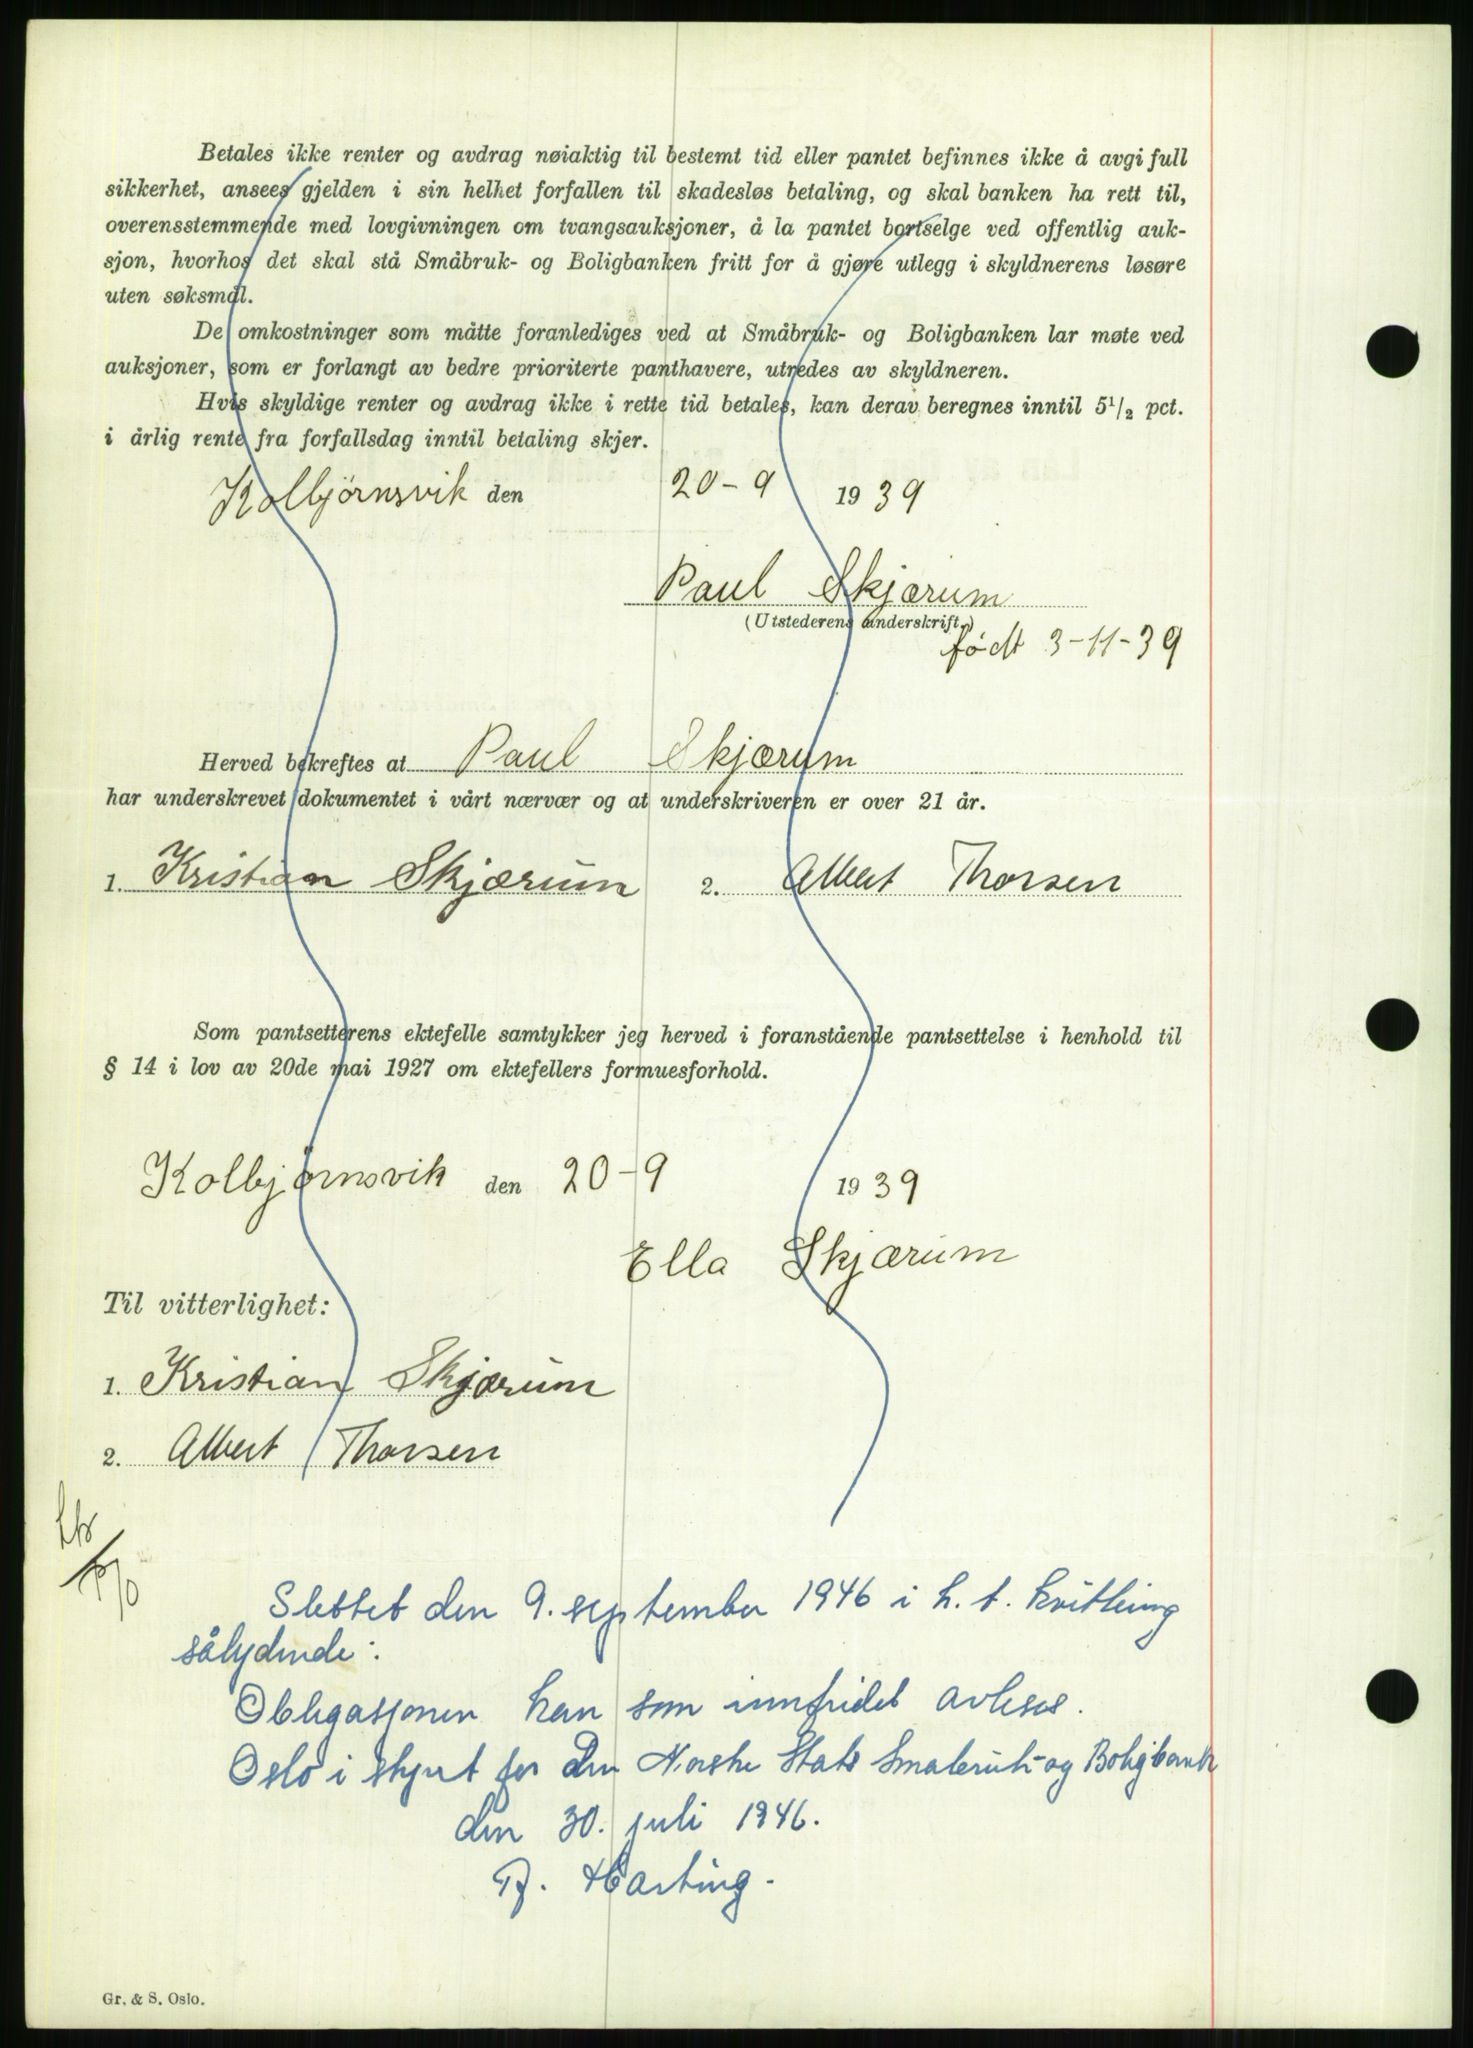 Betales ikke renter og avdrag nøiaktig til bestemt tid eller pantet befinnes ikke å avgi full
sikkerhet, ansees gjelden i sin helhet forfallen til skadesløs betaling, og skal banken ha rett til,
overensstemmende med lovgivningen om tvangsauksjoner, å la pantet bortselge ved offentlig auk-
sjon, hvorhos det skal stå Småbruk- og Boligbanken fritt for å gjøre utlegg i skyldnerens løsøre
uten søksmål.
De omkostninger som måtte foranlediges ved at Småbruk- og Boligbanken lar møte ved
auksjoner, som er forlangt av bedre prioriterte panthavere, utredes av skyldneren.
Hvis skyldige renter og avdrag ikke i rette tid betales, kan derav beregnes inntil 5 1/2 pct.
i årlig rente fra forfallsdag inntil betaling skjer.
Kolbjørnsvik den 20-9 1939
Paul Skjærum
(Utstederens underskrift.)
født 3-11-39
Herved bekreftes at Paul Skjærum
har underskrevet dokumentet i vårt nærvær og at underskriveren er over 21 år.
1. Kristian Skjærum 2. Albert Thorsen
Som pantsetterens ektefelle samtykker jeg herved i foranstående pantsettelse i henhold til
§ 14 i lov av 20de mai 1927 om ektefellers formuesforhold.
Kolbjörnsvik den 20-9 1939
Ella Skjærum
Til vitterlighet:
1. Kristian Skjærum
2. Albert Thorsen
Slettet den 9. september 1946 i h. t. kvittering
sålydende:
Obligasjonen kan som innfridet avleses.
Oslo i styret for Den Norske Stats Småbruk- og Boligbank
den 30. juli 1946.
Harting.
Gr. & S. Oslo.